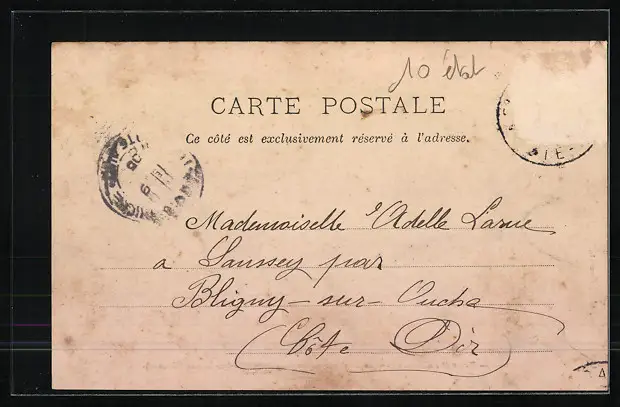 10 état
CARTE POSTALE
Ce côté est exclusivement réservé à l'adresse.
Mademoiselle Adelle Larue
a Saussey par
Bligny-sur-Ouche
(Côte Dor)